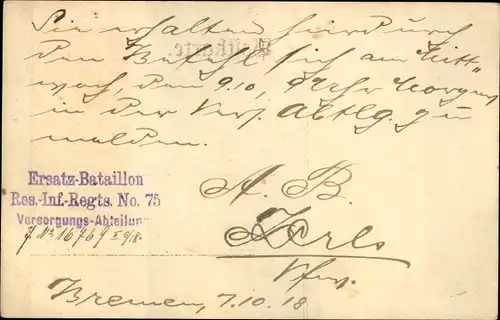 Sie erhalten hierdurch
den Befehl sich am Mitt-
woch, den 9.10, 9 Uhr Morgens
in der Vers. Abtlg. zu
melden.
A. B.
Bremen, 7.10.18
Ersatz-Bataillon
Res.-Inf.-Regts. No. 75
Versorgungs-Abteilung
J. No 16769